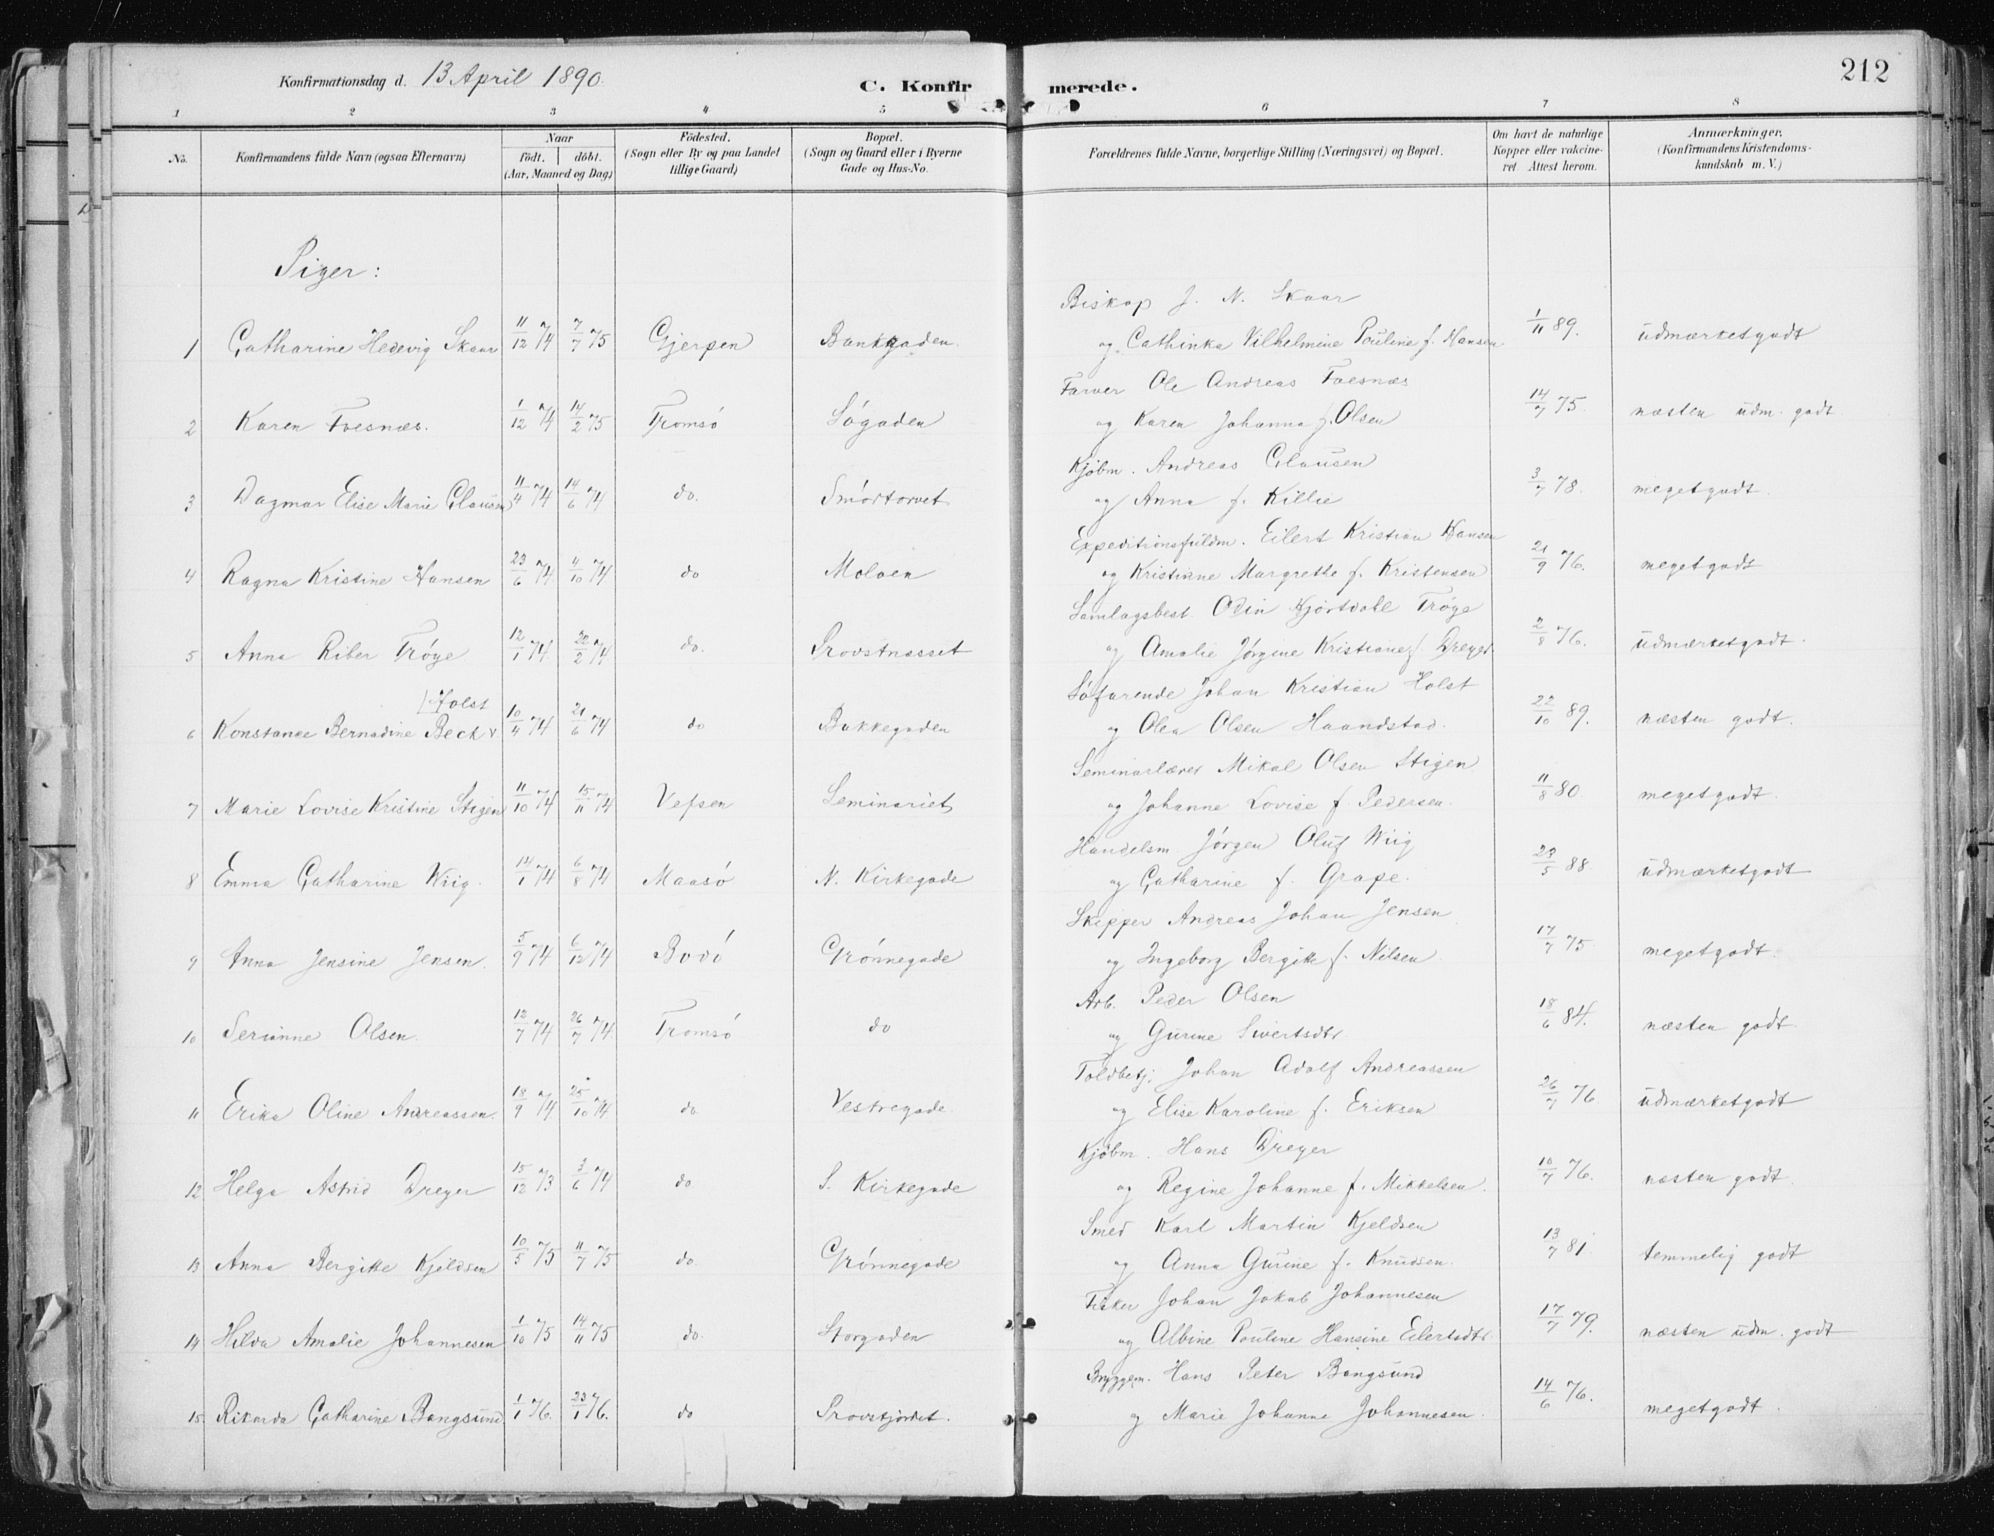 Konfirmationsdag d. 13 April 1890.
C. Konfirmerede.
212
1 2 3 4 5 6 7 8
No.
Konfirmandens fulde Navn (ogsaa Efternavn)
Naar
født. døbt.
(Aar, Maaned og Dag)
Fødested.
(Sogn eller By og paa Landet
tillige Gaard)
Bopæl.
(Sogn og Gaard eller i Byerne
Gade og Hus-No.
Forældrenes fulde Navne, borgerlige Stilling (Næringsvei) og Bopæl.
Om havt de naturlige
Kopper eller vakcine-
ret. Attest herom.
Anmærkninger.
(Konfirmandens Kristendoms-
kundskab m. V.)
Piger:
Biskop J. N. Skaar
1 Catharine Hedevig Skaar 11/12 74 7/7 75 Gjerpen Bankgaden. og Cathinka Vilhelmine Pouline f. Hansen 1/11 89. udmærketgodt
Farver Ole Andreas Foesnæs
2 Karen Foesnæs. 1/12 74 14/2 75 Tromsø Søgaden og Karen Johanna f. Olsen 14/7 75. næsten udm. godt
Kjøbm. Andreas Clausen
3 Dagmar Elise Marie Clausen 11/4 74 14/6 74 do. Smørtorvet og Anna f. Killie 3/7 78. megetgodt.
Expeditionsfuldm. Eilert Kristian Hansen
4 Ragna Kristine Hansen 23/6 74 4/10 74 do Moloen og Kristiane Margrethe f. Kristensen 21/9 76. megetgodt
Samlagsbest. Odin Hjortdahl Trøye
5 Anna Riber Trøye 12/1 74 22/2 74 do. Provstnæsset og Amalie Jørgine Kristiane f. Dreyer 2/8 76. udmærketgodt.
(Holst
Søfarende Johan Kristian Holst
6 Konstance Bernadine Beck 10/4 74 21/6 74 do Bakkegaden og Olea Olsen Haandstad. 22/10 89. næsten godt.
Seminarlærer Mikal Olsen Stigen
7 Marie Lovise Kristine Stigen 11/10 74 15/11 74 Vefsen Seminariet og Johanne Lovise f. Pedersen. 11/8 80. megetgodt.
Handelsm. Jørgen Oluf Wiig
8 Emma Catharine Wiig. 14/1 74 6/8 74 Maasø N. Kirkegade og Catharine f. Grape. 23/5 88 udmærketgodt
Skipper Andreas Johan Jensen
9 Anna Jensine Jensen. 5/9 74 6/12 74 Bodø Grønnegade og Ingeborg Bergitte f. Nilsen 17/7 75 megetgodt.
Arb. Peder Olsen
10 Serianne Olsen. 12/7 74 26/7 74 Tromsø do og Gurine Sivertsdtr 18/6 84. næsten godt.
Toldbetj. Johan Adolf Andreassen
11 Erika Oline Andreassen. 18/9 74 25/10 74 do. Vestregade. og Elise Karoline f. Eriksen 26/7 76 udmærketgodt
Kjøbm. Hans Dreyer
12 Helga Astrid Dreyer 15/12 73 3/6 74 do S. Kirkegade og Regine Johanne f. Mikkelsen. 10/7 76. næsten godt.
Smed Karl Martin Kjeldsen
13 Anna Bergitte Kjeldsen 10/5 75 11/7 75 do. Grønnegade og Anna Gurine f. Knudsen. 13/7 81. temmelig godt
Fisker Johan Jakob Johannesen
14 Hilda Amalie Johannesen 1/10 75 14/11 75 do. Storgaden og Albine Pouline Hansine Eilertsdtr 17/7 79. næsten udm. godt
Bryggem. Hans Peter Bangsund
15. Rikarda Catharine Bangsund 1/1 76. 23/1 76. do Provstjordet. og Marie Johanne Johannesen. 14/6 76. megetgodt.